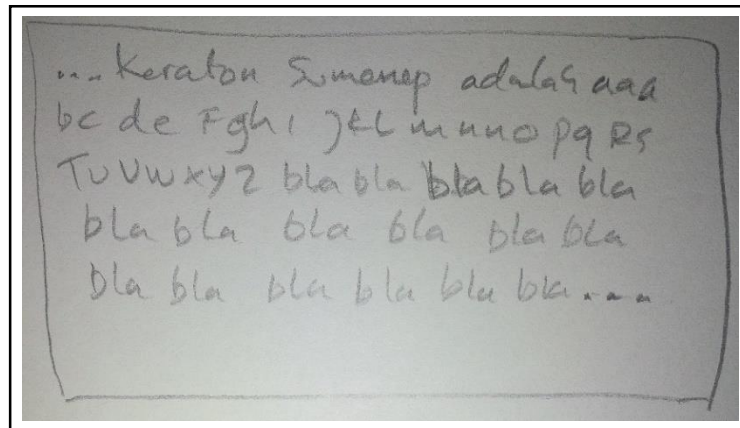 ... Keraton Sumenep adalah aaa
bc de Fghi jkL mnno pq Rs
TuVwxyz bla bla bla bla bla
bla bla bla bla bla bla
bla bla bla bla bla bla ....